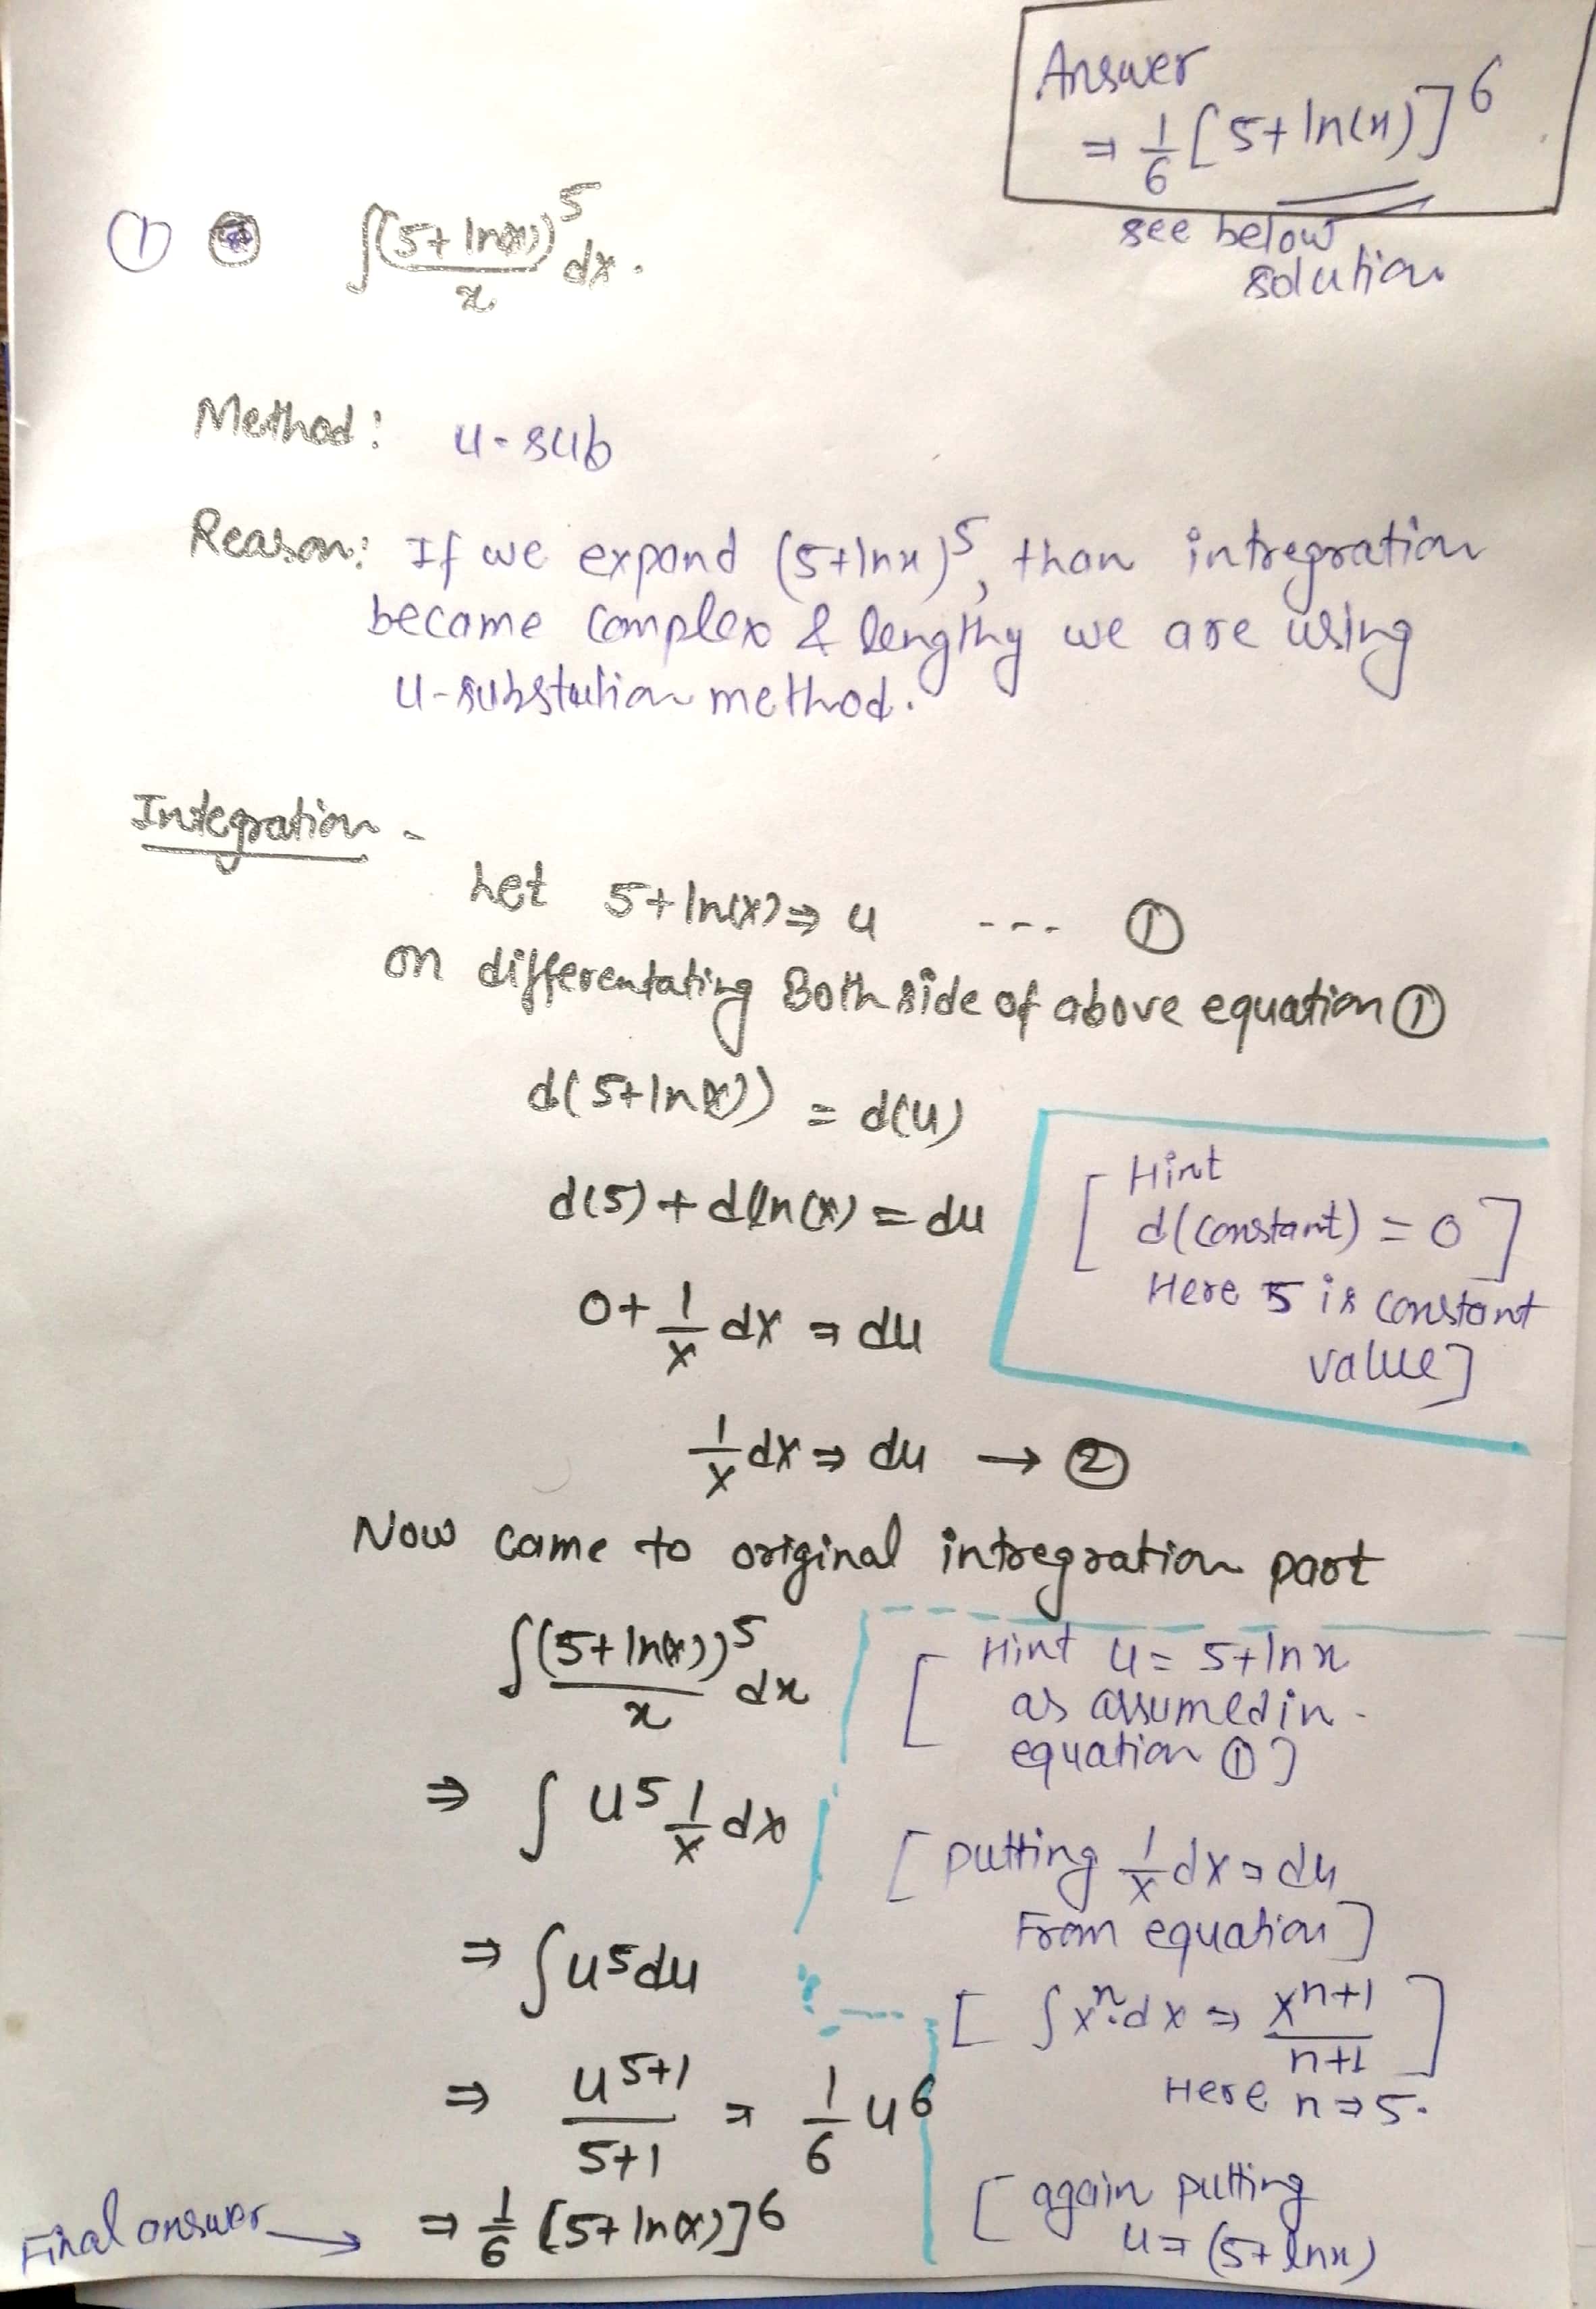 Answer
⇒ 1/6 [5+ ln(x)]^6
see below
solution
① ∫ (5+ ln(x))^5 / x dx.
Method: u-sub
Reason: If we expand (5+lnx)^5, than intregration
became complex & lengthy we are using
u-substution method.
Integration -
Let 5+ln(x) ⇒ u --- ①
on differentating Both side of above equation ①
d(5+ln(x)) = d(u)
d(5) + dln(x) = du
[ Hint
d(constant) = 0 ]
Here 5 is constant
value]
0+ 1/x dx = du
1/x dx ⇒ du → ②
Now came to original intregration part
∫ (5+ ln(x))^5 / x dx
[ Hint u = 5+lnx
as assumed in
equation ① ]
⇒ ∫ u^5 1/x dx
[ putting 1/x dx = du
From equation ]
⇒ ∫ u^5 du
[ ∫ x^n·dx ⇒ x^n+1 / n+1 ]
Here n ⇒ 5.
⇒ u^5+1 / 5+1 = 1/6 u^6
[ again putting
u = (5+ lnx)
Final answer → ⇒ 1/6 [5+ ln(x)]^6